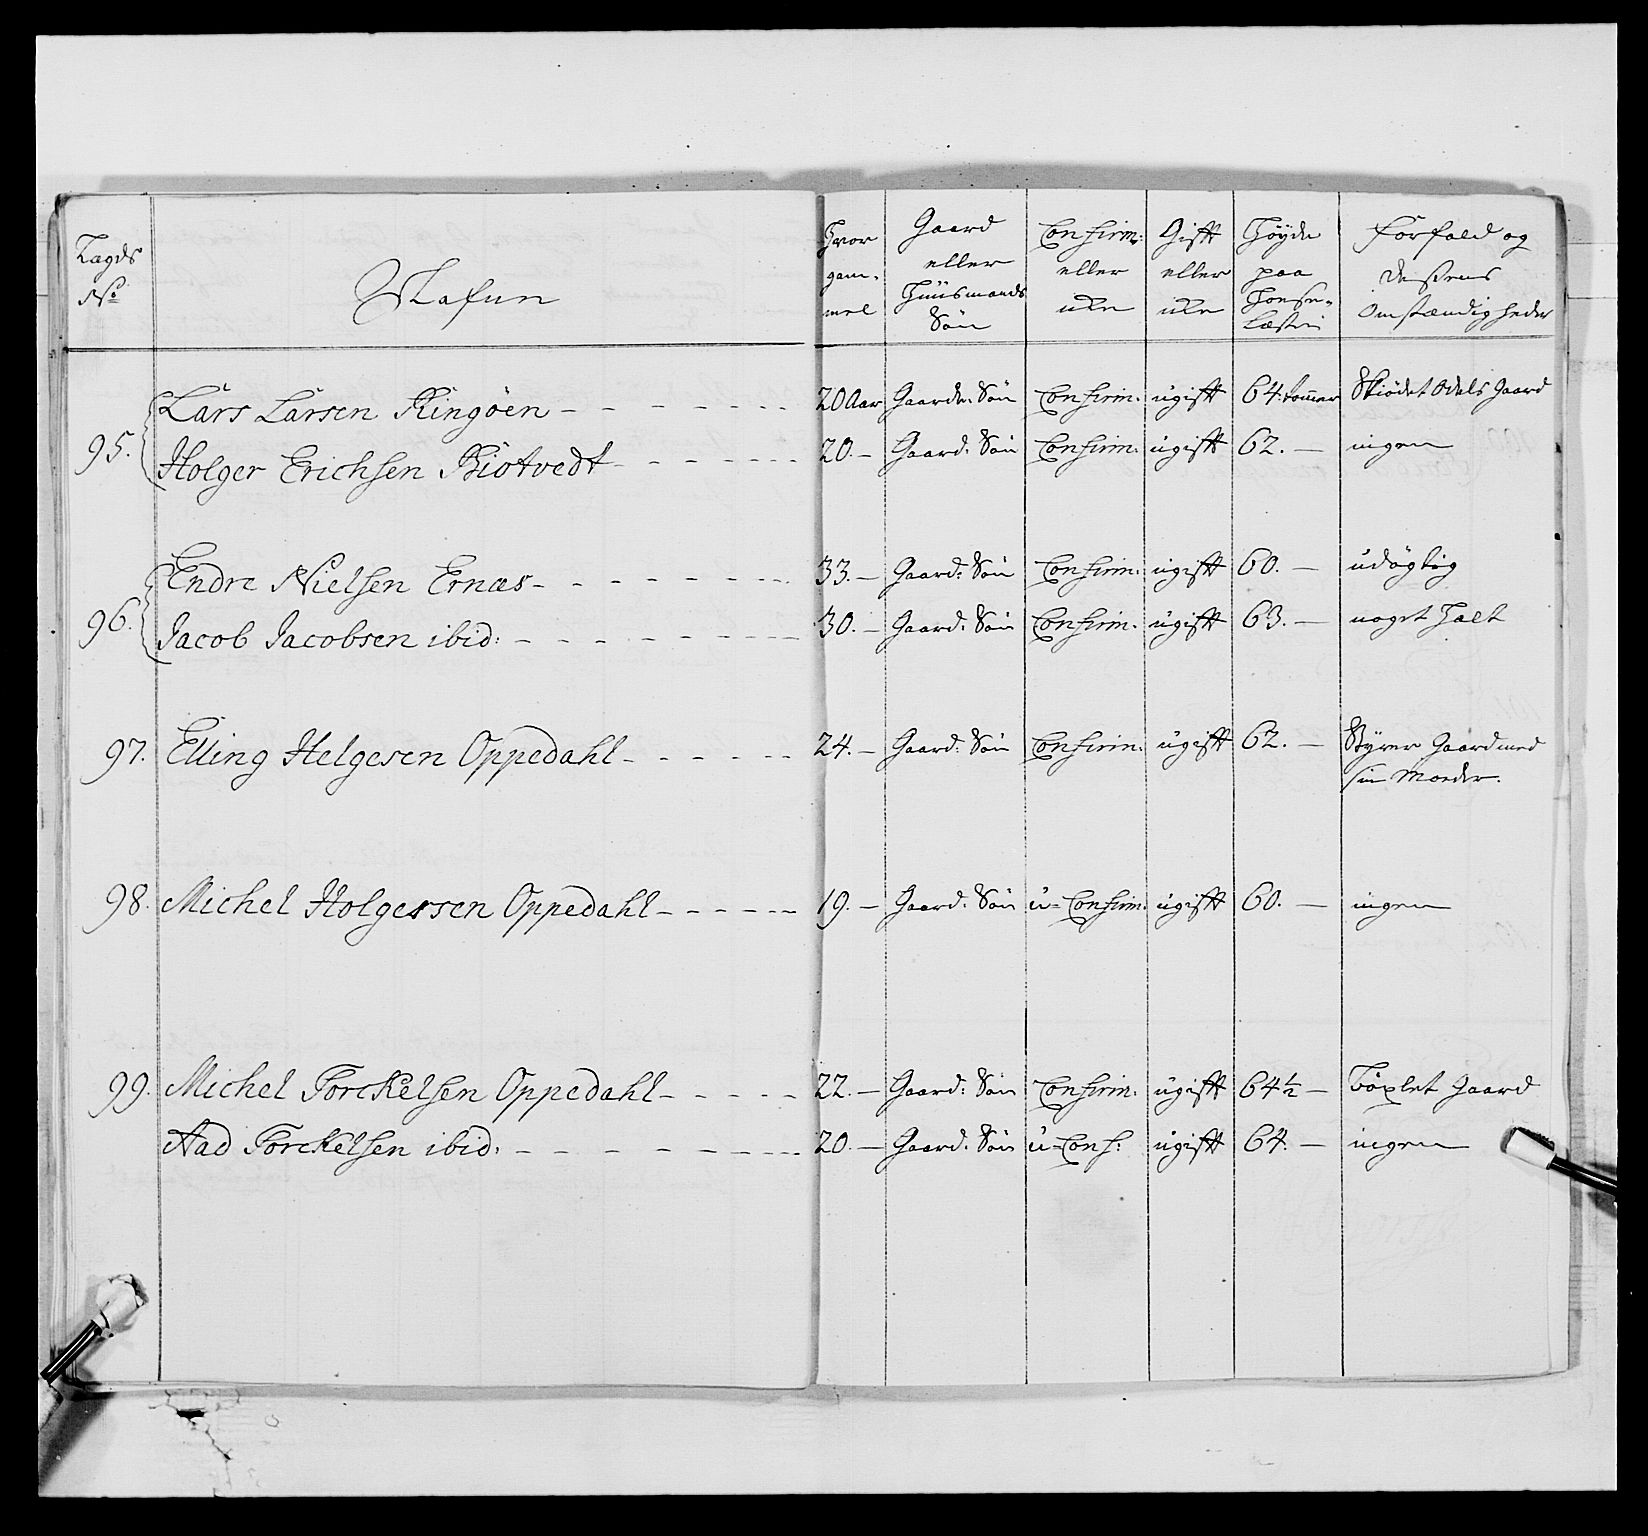 Lagds No | Nafun | Hvor gam- mel | Gaard eller Huusmands Søn | Confirm: eller ikke | Gift eller ikke | Høyde paa | Forfald og deßens Omstændigheder
95. Lars Larsen Ringöen - - - - - - - | 20 Aar | Gaards Søn | Confirm. | ugift | 64. tommer | Skiødet Odels Gaard
Holger Erichsen Kiotvedt - - - - - - | 20. — | Gaard: Søn | Confirm. | ugift | 62. — | ingen
96. Endre Nielsen Ernæs - - - - - - - | 33. — | Gaard: Søn | Confirm. | ugift | 60. — | udøgtig
Jacob Jacobsen ibid: - - - - - - - | 30. — | Gaard: Søn | Confirm. | ugift | 63. — | noget Halt
97. Elling Helgesen Oppedahl - - - - - - | 24. — | Gaard: Søn | Confirm. | ugift | 62. — | Styrer Gaard med
sin Moeder.
98. Michel Holgessen Oppedahl - - - - - | 19. — | Gaard: Søn | u-Confirm. | ugift | 60. — | ingen
99. Michel Torckelsen Oppedahl - - - - - | 22. — | Gaard: Søn | Confirm. | ugift | 64½ — | Bøxlet Gaard
Aad Torckelsen ibid: - - - - - - - | 20. — | Gaard: Søn | u-Conf: | ugift | 64. — | ingen